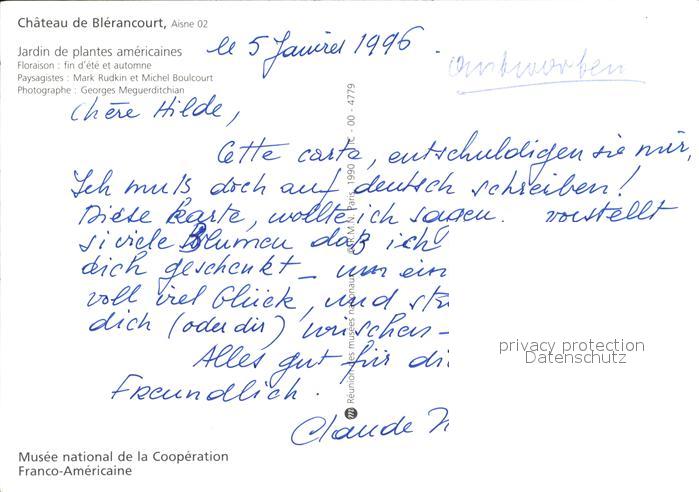 Château de Blérancourt, Aisne 02
Jardin de plantes américaines
Floraison : fin d'été et automne
Paysagistes : Mark Rudkin et Michel Boulcourt
Photographe : Georges Meguerditchian
le 5 Janvier 1996.
antworten
Chère Hilde,
Cette carte, entschuldigen sie mir,
Ich muß doch auf deutsch schreiben!
Diese Karte, wollte ich sagen. vorstellt
si viele Blumen daß ich
dich geschenkt – um ein
voll viel Glück, und
dich (oder dir) wischen –
Alles gut für
Freundlich.
Claude
Réunion des musées nationaux
R.M.N. Paris, 1990
00 - 4779
privacy protection
Datenschutz
Musée national de la Coopération
Franco-Américaine